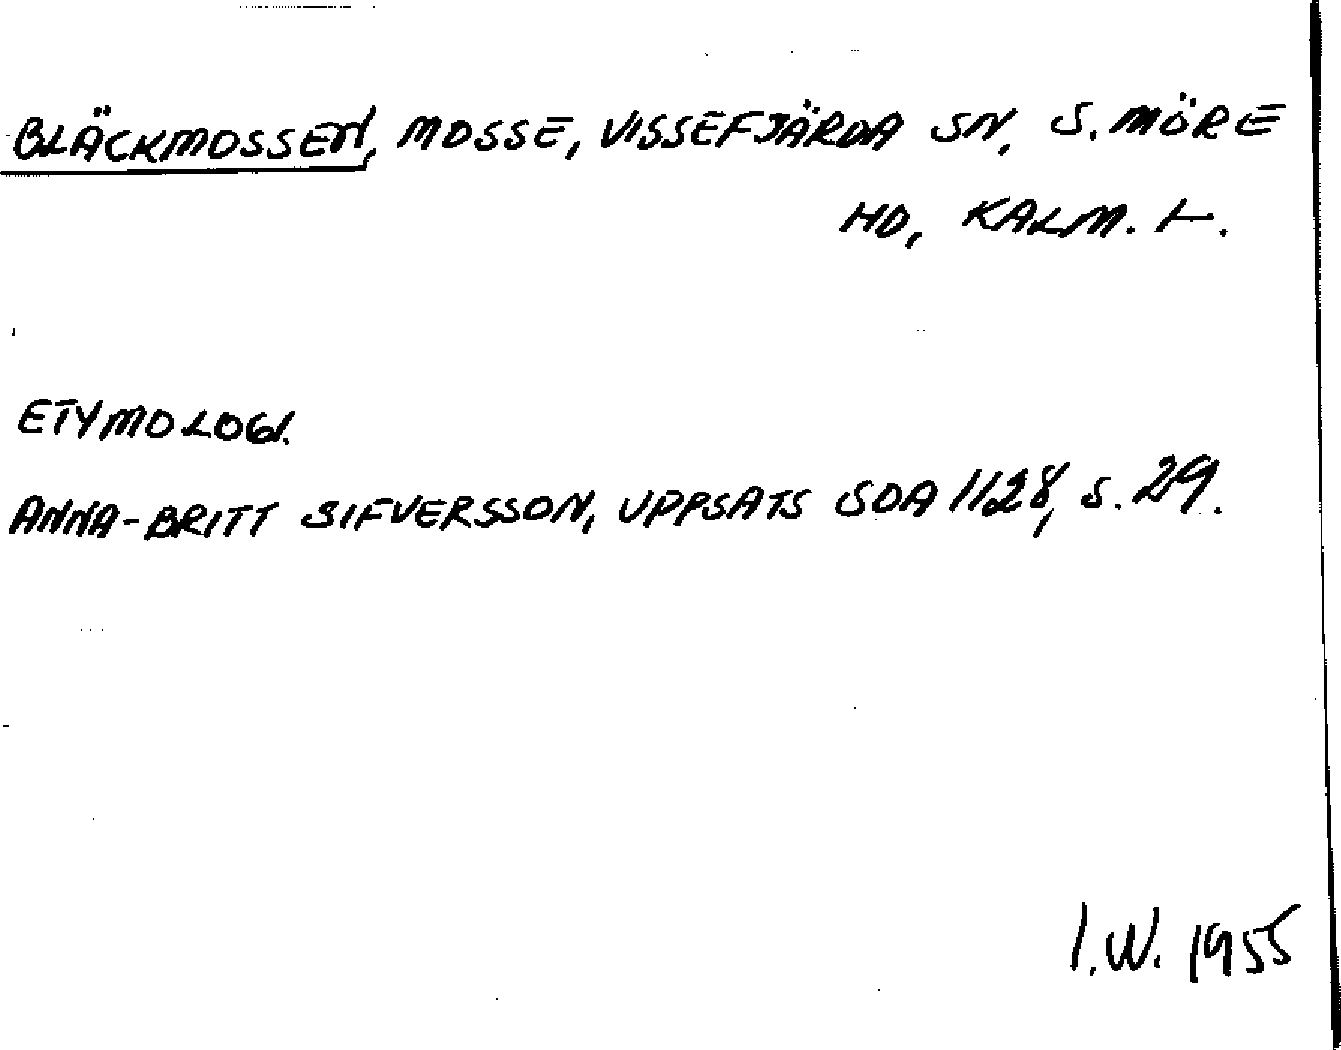 BLÄCKMOSSEN, MOSSE, VISSEFJÄRDA SN, S. MÖRE
HD, KALM. L.
ETYMOLOGI.
ANNA-BRITT SIFVERSSON, UPPSATS SOA 1128, S. 29.
I.W. 1955